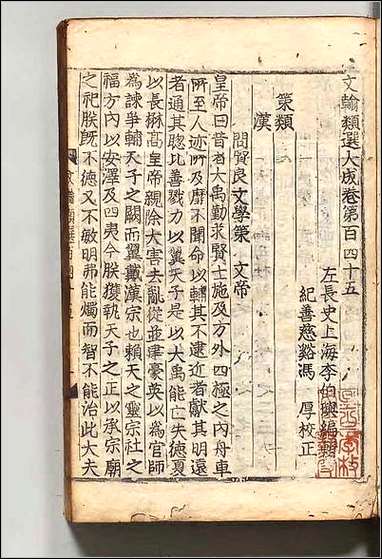 文翰類選大成卷第百四十五
左長史上海李伯璵編類
紀善慈谿馮 厚校正
策類
漢
問賢良文學策 文帝
皇帝曰昔者大禹勤求賢士施及方外四極之內舟車
所至人迹所及靡不聞命以輔其不逮近者獻其明遠
者通其聰比善戮力以翼天子是以大禹能亡失德夏
以長楙高皇帝親除大害去亂從並建豪英以為官師
為諫爭輔天子之闕而翼戴漢宗也賴天之靈宗社之
福方內以安澤及四夷今朕獲執天子之正以承宗廟
之祀朕既不德又不敏明弗能燭而智不能治此大夫